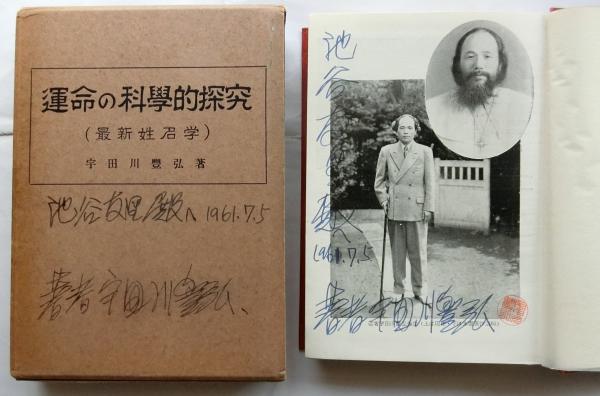 運命の科學的探究
(最新姓召学)
宇田川豐弘著
池谷友里殿へ 1961.7.5
著者 宇田川豊弘、
池谷友里殿へ
1961.7.5
著者 宇田川豊弘